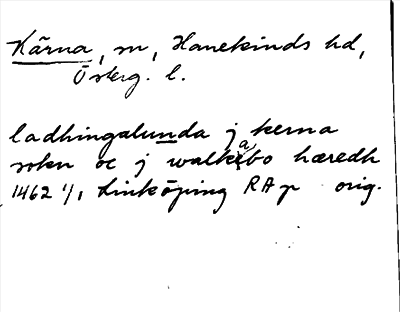 Kärna, sn, Hanekinds hd,
Österg. l.
ladhingalunda j kerna
sokn oc j walkabo hæredh
1462 1/1 Linköping RAp orig.